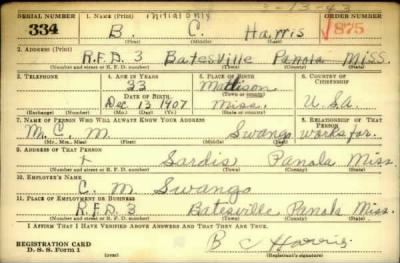 2-13-43
SERIAL NUMBER 1. NAME (Print) initial only ORDER NUMBER
334 B. C. Harris 875
(First) (Middle) (Last)
2. ADDRESS (Print)
R.F.D. 3 Batesville Panola Miss.
(Number and street or R. F. D. number) (Town) (County) (State)
3. TELEPHONE 4. AGE IN YEARS 5. PLACE OF BIRTH 6. COUNTRY OF CITIZENSHIP
33 Mattison
DATE OF BIRTH (Town or county)
Dec. 13 1907 Miss. U.S.A
(Exchange) (Number) (Mo.) (Day) (Yr.) (State or country)
7. NAME OF PERSON WHO WILL ALWAYS KNOW YOUR ADDRESS 8. RELATIONSHIP OF THAT PERSON
M. C. M. Swango works for.
(Mr., Mrs., Miss) (First) (Middle) (Last)
9. ADDRESS OF THAT PERSON
Sardis Panola Miss.
(Number and street or R. F. D. number) (Town) (County) (State)
10. EMPLOYER'S NAME
C. M. Swango
11. PLACE OF EMPLOYMENT OR BUSINESS
R.F.D. 3 Batesville Panola Miss.
(Number and street or R. F. D. number) (Town) (County) (State)
I AFFIRM THAT I HAVE VERIFIED ABOVE ANSWERS AND THAT THEY ARE TRUE.
REGISTRATION CARD B C Harris
D. S. S. Form 1 (over) (Registrant's signature)